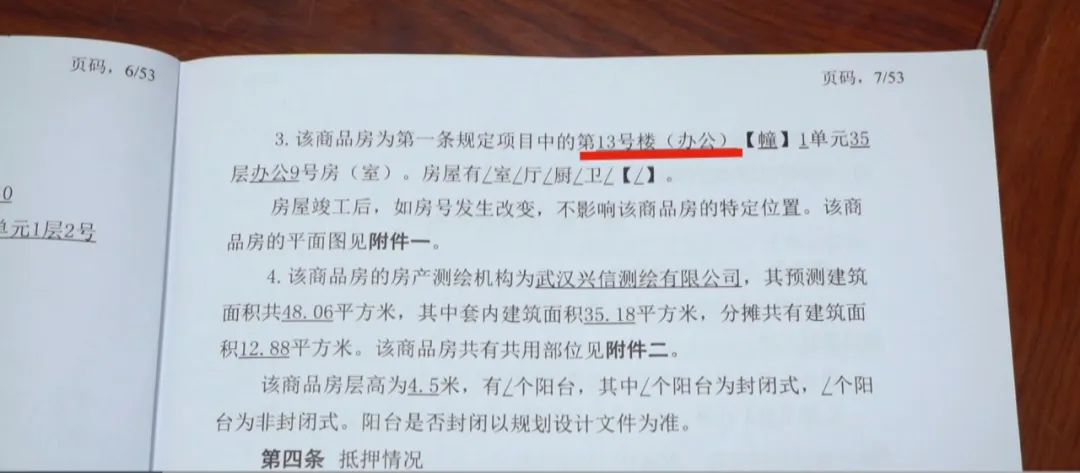 页码，6/53
0
单元1层2号
页码，7/53
3. 该商品房为第一条规定项目中的第13号楼（办公）【幢】1单元35
层办公9号房（室）。房屋有/室/厅/厨/卫/【/】。
房屋竣工后，如房号发生改变，不影响该商品房的特定位置。该商
品房的平面图见附件一。
4. 该商品房的房产测绘机构为武汉兴信测绘有限公司，其预测建筑
面积共48.06平方米，其中套内建筑面积35.18平方米，分摊共有建筑面
积12.88平方米。该商品房共有共用部位见附件二。
该商品房层高为4.5米，有/个阳台，其中/个阳台为封闭式，/个阳
台为非封闭式。阳台是否封闭以规划设计文件为准。
第四条 抵押情况